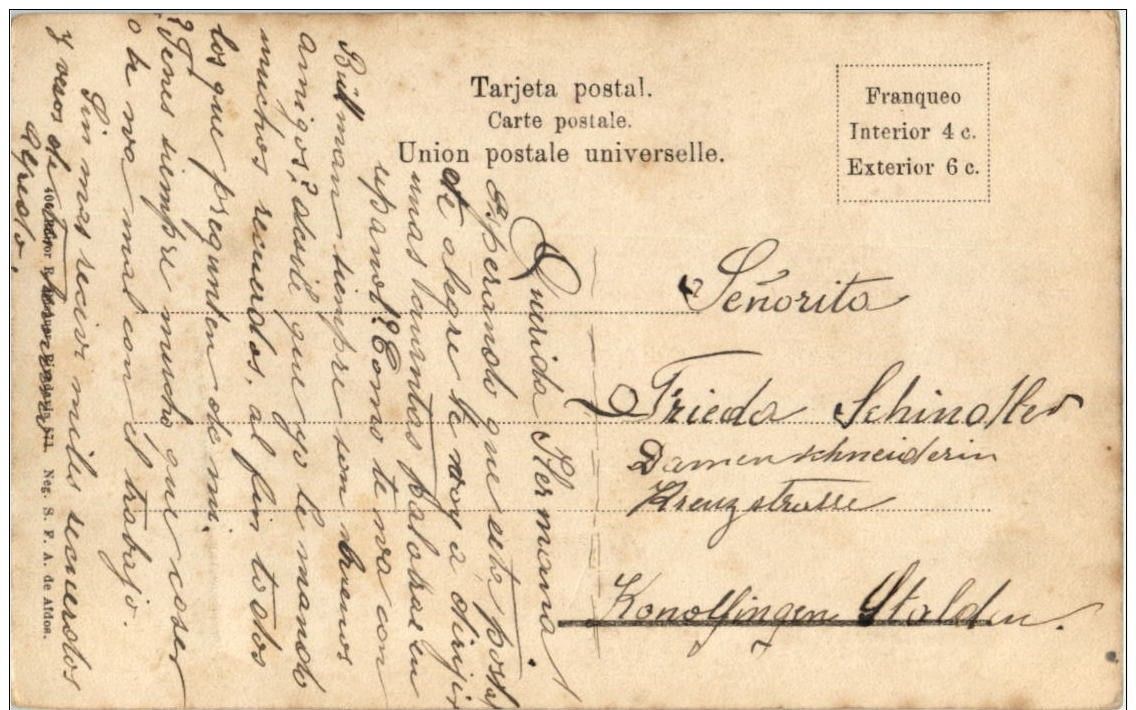 Tarjeta postal.
Carte postale.
Union postale universelle.
Franqueo
Interior 4 c.
Exterior 6 c.
Señorita
Frieda Schindller
Damenschneiderin
Kreuzstrasse
Konolfingen Stalden.
Querida Hermana!
Esperando que esta postal
te alegre te voy a dirijir
unas cuantas palabras en
español? Como te va con
Billman siempre son buenos
amigos? desile que yo le mando
muchos recuerdos, al fin todos
los que pregunten de mi.
? Tenes siempre mucho que coser
o te va mal con el trabajo.
Sin mas recivi miles recuerdos
y vesos de
Neg. S. F. A. de Afdos.